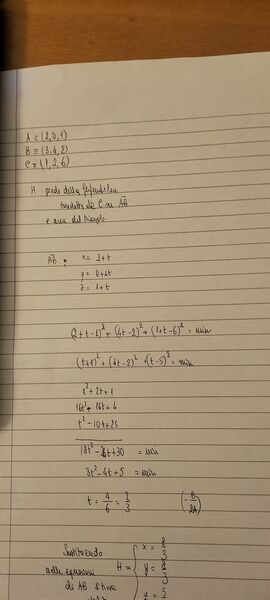 A = (2,0,1)
B = (3,4,2)
C = (1,2,6)
H piede della perpendicolare
condotta da C su AB
e area del triangolo
AB : x = 2+t
y = 0+4t
z = 1+t
(2+t-1)² + (4t-2)² + (1+t-6)² = min
(t+1)² + (4t-2)² + (t-5)² = min
t² + 2t + 1
16t² - 16t + 4
t² - 10t + 25
18t² - 24t + 30 = min
3t² - 4t + 5 = min
t = 4/6 = 2/3 (-B/2A)
Sostituendo
nelle equazioni
di AB si ha
H = { x = 8/3
y = 8/3
z = 5/